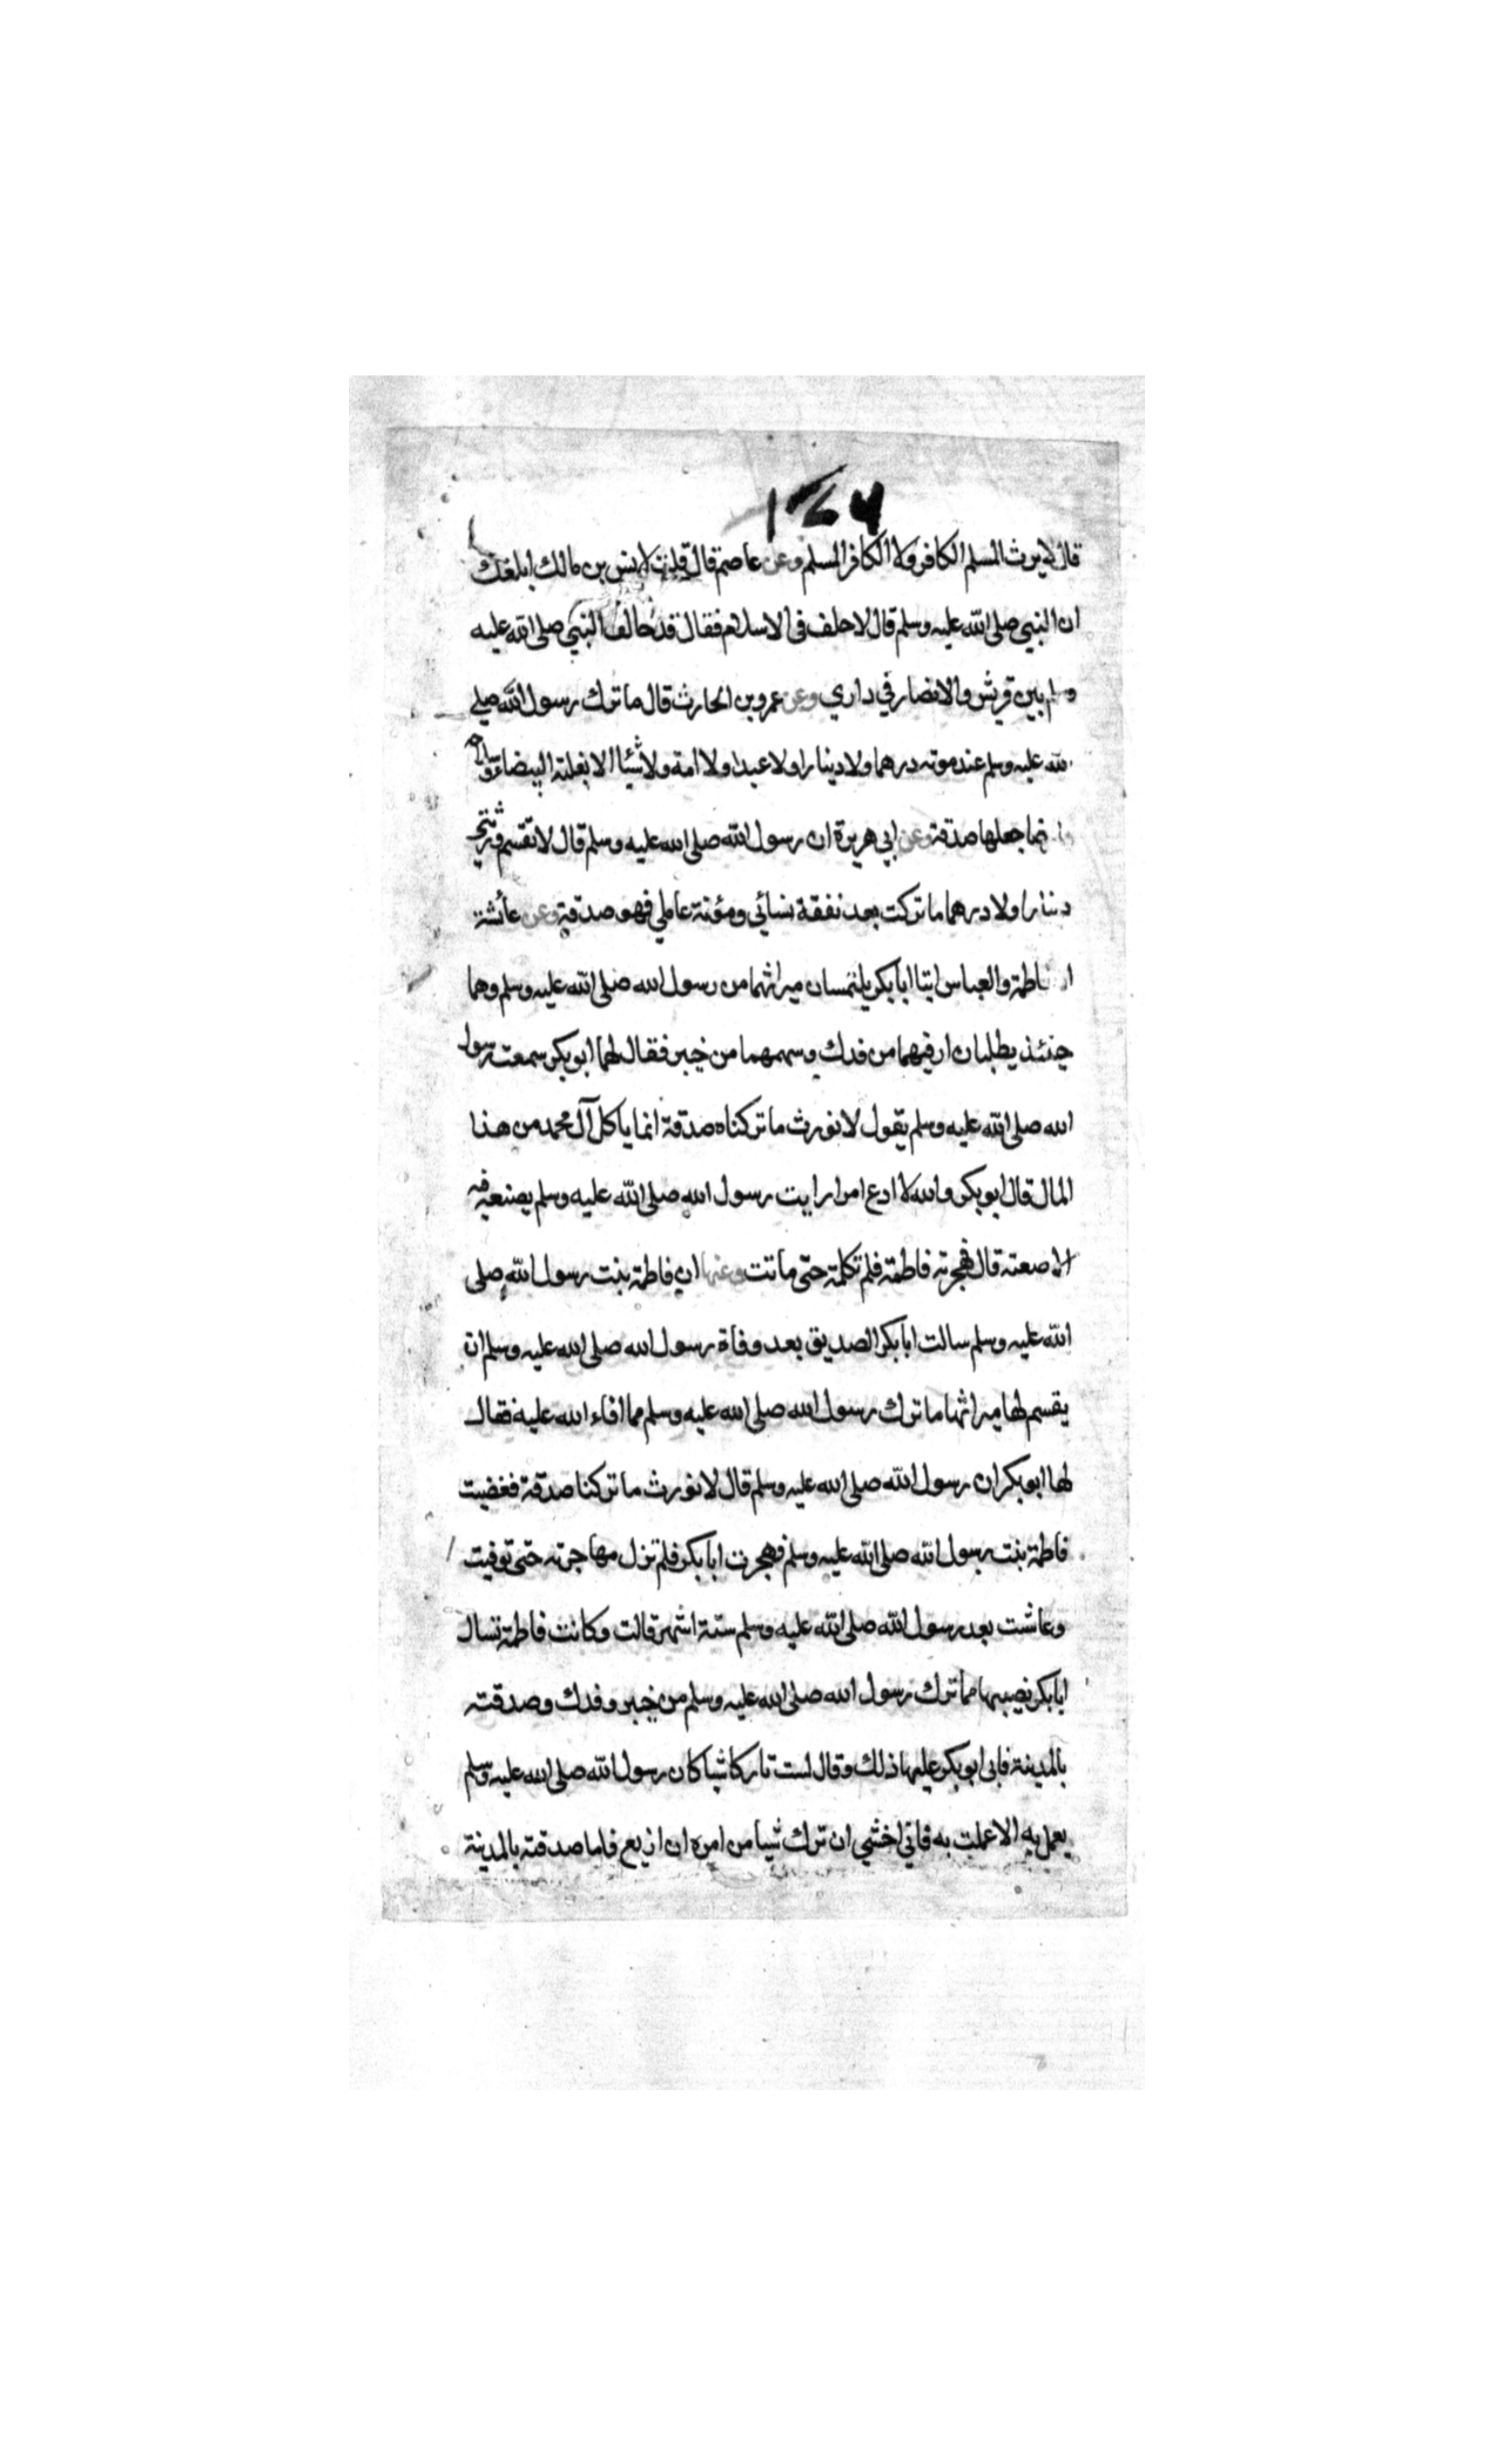 ١٤٦
قال لا يرث المسلم الكافر ولا الكافر المسلم وعن عاصم قال قلت لانس بن مالك ابلغك
ان النبي صلى الله عليه وسلم قال لا حلف في الاسلام فقال قد حالف النبي صلى الله عليه
وسلم بين قريش والانصار في داري وعن عمرو بن الحارث قال ما ترك رسول الله صلى
الله عليه وسلم عند موته درهما ولا دينارا ولا عبدا ولا امة ولا شئا الا بغلته البيضاء
جعلها صدقة وعن ابي هريرة ان رسول الله صلى الله عليه وسلم قال لا تقسم ورثتي
دينارا ولا درهما ما تركت بعد نفقة نسائي ومؤنة عاملي فهو صدقة وعن عائشة
ان فاطمة والعباس اتيا ابا بكر يلتمسان ميراثهما من رسول الله صلى الله عليه وسلم وهما
حينئذ يطلبان ارضيهما من فدك وسهمهما من خيبر فقال لهما ابو بكر سمعت رسول
الله صلى الله عليه وسلم يقول لا نورث ما تركناه صدقة انما ياكل آل محمد من هذا
المال قال ابو بكر والله لا ادع امرا رايت رسول الله صلى الله عليه وسلم يصنعه فيه
الا صعته قال فهجرته فاطمة فلم تكلمه حتى ماتت وعنها ان فاطمة بنت رسول الله صلى
الله عليه وسلم سالت ابا بكر الصديق بعد وفاة رسول الله صلى الله عليه وسلم ان
يقسم لها ميراثها ما ترك رسول الله صلى الله عليه وسلم مما افاء الله عليه فقال
لها ابو بكر ان رسول الله صلى الله عليه وسلم قال لا نورث ما تركنا صدقة فغضبت
فاطمة بنت رسول الله صلى الله عليه وسلم فهجرت ابا بكر فلم تزل مهاجرته حتى توفيت
وعاشت بعد رسول الله صلى الله عليه وسلم ستة اشهر قالت وكانت فاطمة تسال
ابا بكر نصيبها مما ترك رسول الله صلى الله عليه وسلم من خيبر وفدك وصدقته
بالمدينة فابى ابو بكر عليها ذلك وقال لست تاركا شيا كان رسول الله صلى الله عليه وسلم
يعمل به الا عملت به فاني اخشى ان ترك شيا من امره ان ازيغ فاما صدقته بالمدينة